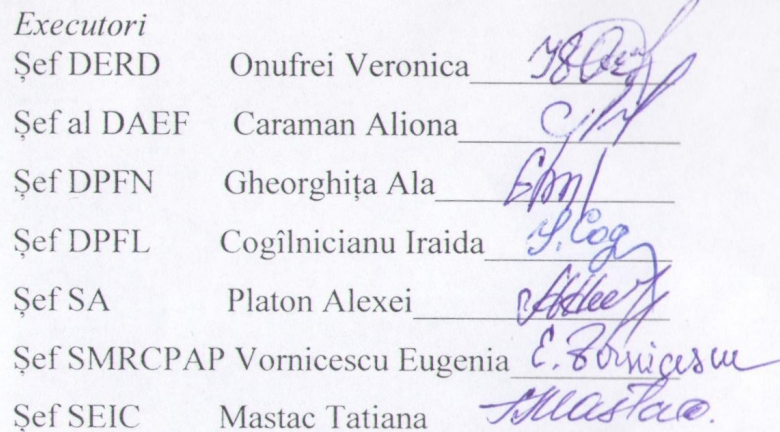 Executori
Șef DERD Onufrei Veronica
Șef al DAEF Caraman Aliona
Șef DPFN Gheorghița Ala
Șef DPFL Cogîlnicianu Iraida I. Cog
Șef SA Platon Alexei
Șef SMRCPAP Vornicescu Eugenia E. Vornicescu
Șef SEIC Mastac Tatiana Mastac